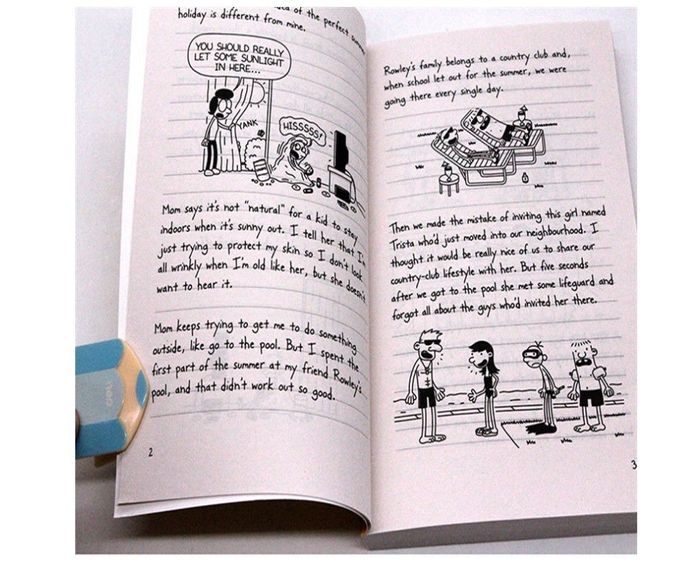 of the perfect
holiday is different from mine.
YOU SHOULD REALLY
LET SOME SUNLIGHT
IN HERE...
YANK
HISSSSS!
Mom says it's not "natural" for a kid to stay
indoors when it's sunny out. I tell her that I'm
just trying to protect my skin so I don't look
all wrinkly when I'm old like her, but she doesn't
want to hear it.
Mom keeps trying to get me to do something
outside, like go to the pool. But I spent the
first part of the summer at my friend Rowley's
pool, and that didn't work out so good.
2
Rowley's family belongs to a country club and,
when school let out for the summer, we were
going there every single day.
Then we made the mistake of inviting this girl named
Trista who'd just moved into our neighbourhood. I
thought it would be really nice of us to share our
country-club lifestyle with her. But five seconds
after we got to the pool she met some lifeguard and
forgot all about the guys who'd invited her there.
3